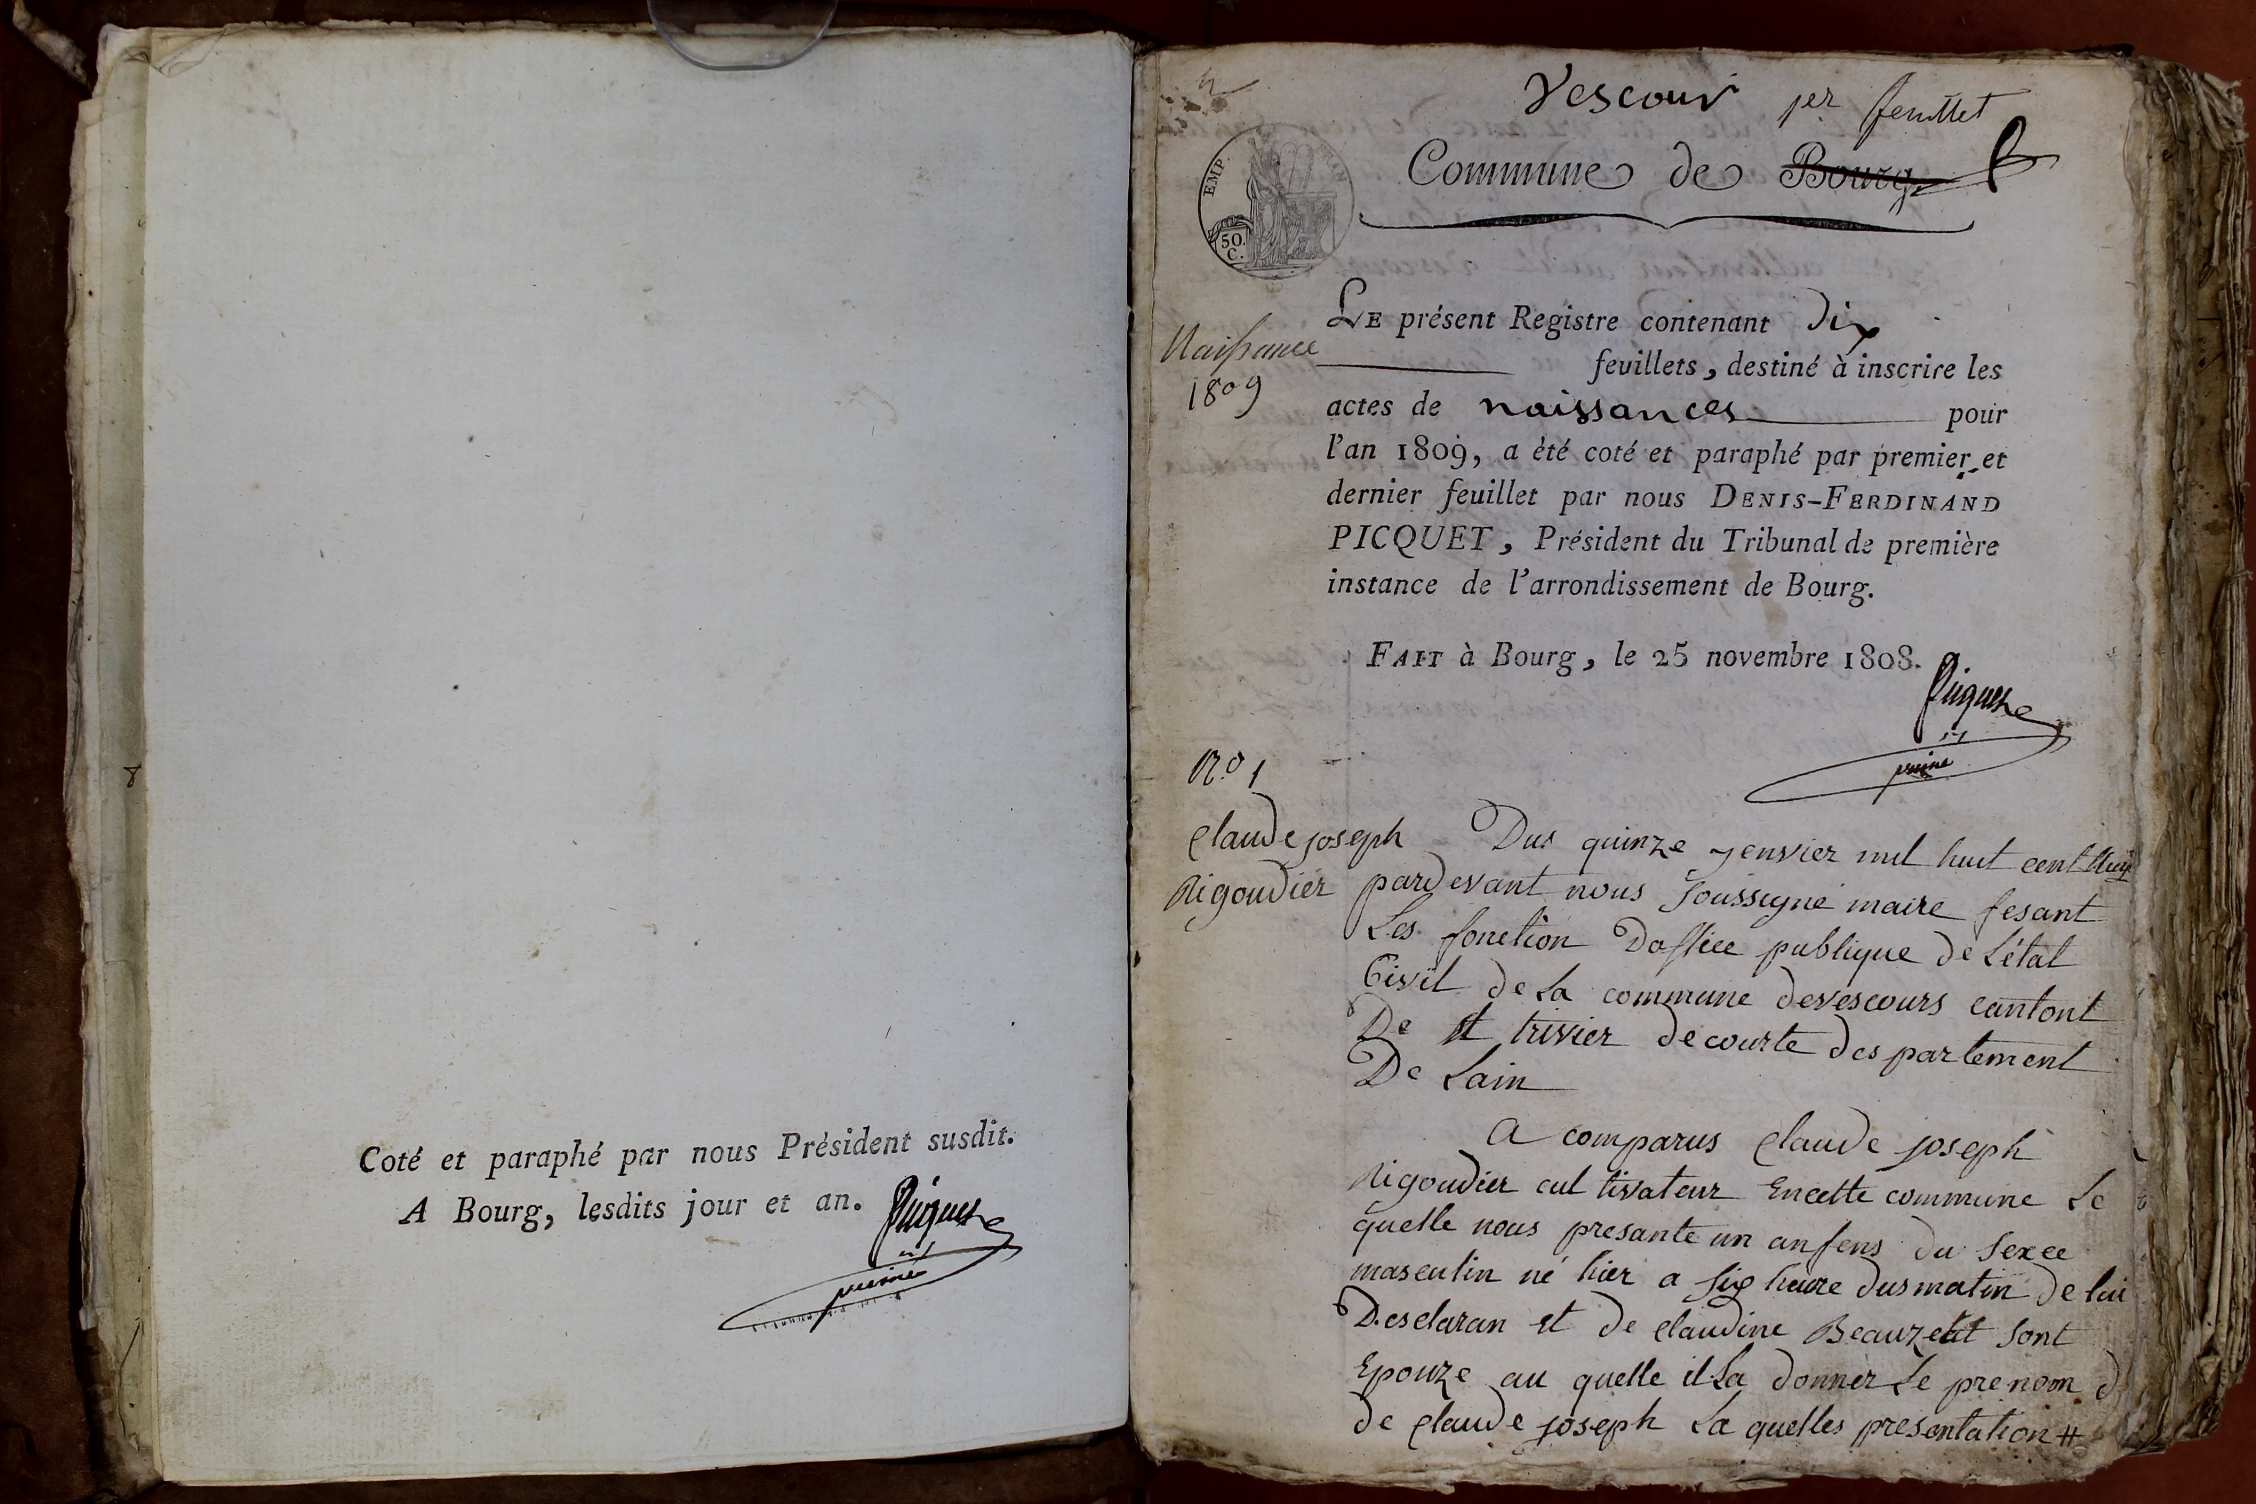 Coté et paraphé par nous Président susdit.
A Bourg, lesdits jour et an. Picquet
Vescour 1er feuillet
Commune de Bourg
EMP.
50.
C.
Naissance
1809
LE présent Registre contenant dix
feuillets, destiné à inscrire les
actes de naissances pour
l'an 1809, a été coté et paraphé par premier et
dernier feuillet par nous DENIS-FERDINAND
PICQUET, Président du Tribunal de première
instance de l'arrondissement de Bourg.
FAIT à Bourg, le 25 novembre 1808.
Picquet
N.o 1
Claude joseph
Rigoudier
Dus quinze jenvier mil huit cent
pardevant nous soussigné maire fesant
Les fonction Doffice publique de Létat
Civil de La commune devescours cantont
De st trivier decourte despartement
De Lain
a comparus Claude joseph
Rigoudier cultivateur Encette commune Le
quelle nous presante un anfens du sexee
masculin né hier a six heure dusmatin de lui
Desclaran et de claudine Beauzetit sont
Epouze au quelle il La donner Le prenom d
de Claude joseph La quelles presentation #